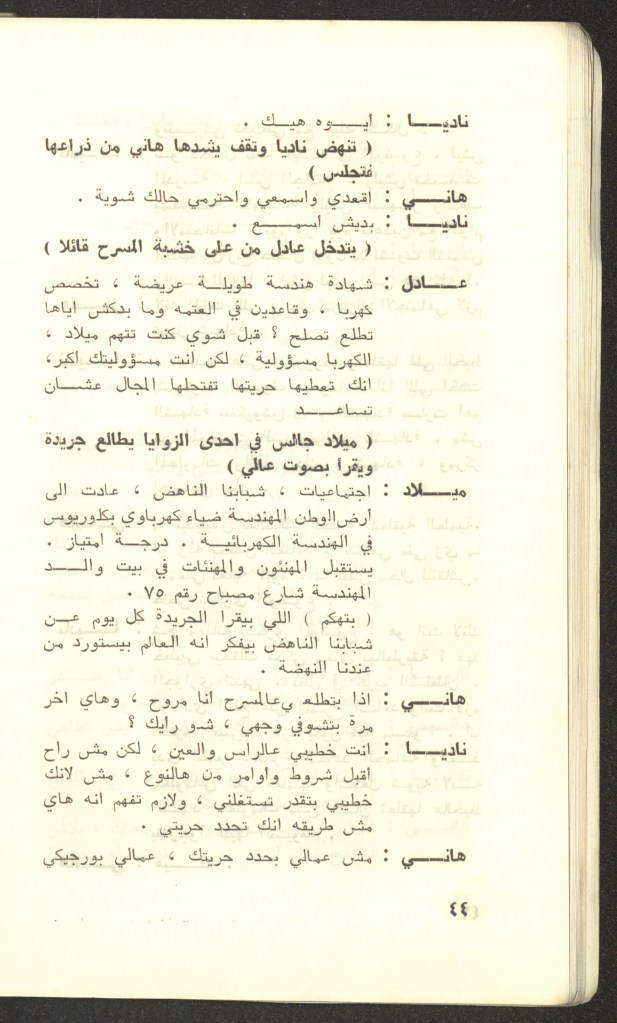 ناديـــا : ايـــوه هيـك .
( تنهض ناديا وتقف يشدها هاني من ذراعها
فتجلس )
هانـــي : اقعدي واسمعي واحترمي حالك شوية .
ناديـــا : بديش اسمـــع .
( يتدخل عادل من على خشبة المسرح قائلا )
عـــادل : شهادة هندسة طويلـة عريضة ، تخصص
كهربا ، وقاعدين في العتمه وما بدكش اياها
تطلع تصلح ؟ قبل شوي كنت تتهم ميلاد ،
الكهربا مسؤولية ، لكن انت مسؤوليتك اكبر،
انك تعطيها حريتها تفتحلها المجال عشـــان
تساعـــد
( ميلاد جالس في احدى الزوايا يطالع جريدة
ويقرأ بصوت عالي )
ميـــلاد : اجتماعيات ، شبابنا الناهض ، عادت الى
أرض الوطن المهندسة ضياء كهرباوي بكلوريوس
في الهندسة الكهربائيـة . درجـة امتياز .
يستقبل المهنئون والمهنئات في بيت والـــد
المهندسة شارع مصباح رقم ٧٥ .
( بتهكم ) اللي بيقرا الجريدة كل يوم عـــن
شبابنا الناهض بيفكر انه العالم بيستورد من
عندنا النهضة .
هانـــي : اذا بتطلعي عالمسرح انا مروح ، وهاي اخر
مرة بتشوفي وجهي ، شو رايك ؟
ناديـــا : انت خطيبي عالراس والعين ، لكن مش راح
اقبل شروط واوامر من هالنوع ، مش لانك
خطيبي بتقدر تستغلني ، ولازم تفهم انه هاي
مش طريقه انك تحدد حريتي .
هانـــي : مش عمالي بحدد حريتك ، عمالي بورجيكي
٤٤